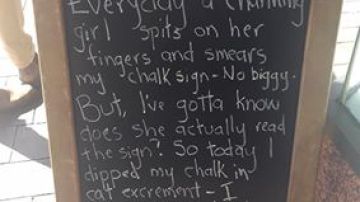 Everyday a charming
girl spits on her
fingers and smears
my chalk sign - No biggy.
But, I've gotta know
does she actually read
the sign? So today I
dipped my chalk in
cat excrement - I